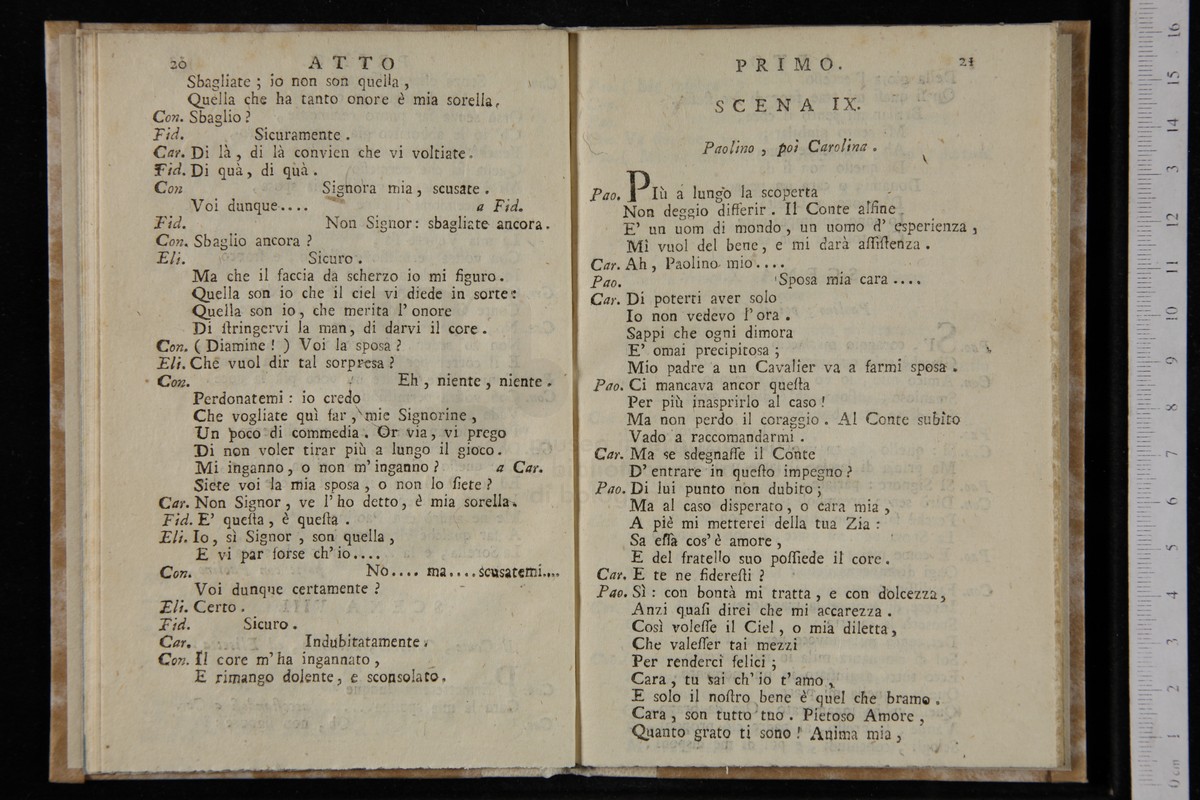 20 ATTO
Sbagliate ; io non son quella ,
Quella che ha tanto onore è mia sorella,
Con. Sbaglio ?
Fid. Sicuramente .
Car. Di là , di là convien che vi voltiate.
Fid. Di quà, di quà .
Con Signora mia , scusate .
Voi dunque.... a Fid.
Fid. Non Signor: sbagliate ancora.
Con. Sbaglio ancora ?
Eli. Sicuro .
Ma che il faccia da scherzo io mi figuro.
Quella son io che il ciel vi diede in sorte:
Quella son io, che merita l' onore
Di ſtringervi la man, di darvi il core .
Con. ( Diamine ! ) Voi la sposa ?
Eli. Che vuol dir tal sorpresa ?
Con. Eh , niente , niente .
Perdonatemi : io credo
Che vogliate quì far , mie Signorine ,
Un poco di commedia . Or via , vi prego
Di non voler tirar più a lungo il gioco.
Mi inganno, o non m' inganno ? a Car.
Siete voi la mia sposa , o non lo ſiete ?
Car. Non Signor , ve l' ho detto, è mia sorella.
Fid. E' queſta , è queſta .
Eli. Io, sì Signor , son quella ,
E vi par forse ch' io....
Con. No.... ma....scusatemi....
Voi dunque certamente ?
Eli. Certo .
Fid. Sicuro .
Car. Indubitatamente .
Con. Il core m' ha ingannato ,
E rimango dolente, e sconsolato.
PRIMO. 21
SCENA IX.
Paolino , poi Carolina .
Pao. PIù a lungo la scoperta
Non deggio differir . Il Conte alfine
E' un uom di mondo , un uomo d' esperienza ,
Mi vuol del bene, e mi darà aſſiſtenza .
Car. Ah , Paolino mio ....
Pao. Sposa mia cara ....
Car. Di poterti aver solo
Io non vedevo l' ora .
Sappi che ogni dimora
E' omai precipitosa ;
Mio padre a un Cavalier va a farmi sposa .
Pao. Ci mancava ancor queſta
Per più inasprirlo al caso !
Ma non perdo il coraggio . Al Conte subito
Vado a raccomandarmi .
Car. Ma se sdegnaſſe il Conte
D' entrare in queſto impegno ?
Pao. Di lui punto non dubito ;
Ma al caso disperato, o cara mia ,
A piè mi metterei della tua Zia :
Sa eſſa cos' è amore ,
E del fratello suo poſſiede il core.
Car. E te ne fidereſti ?
Pao. Sì : con bontà mi tratta , e con dolcezza,
Anzi quaſi direi che mi accarezza .
Così voleſſe il Ciel , o mia diletta,
Che valeſſer tai mezzi
Per renderci felici ;
Cara , tu sai ch' io t' amo ,
E solo il noſtro bene è quel che bramo .
Cara , son tutto tuo . Pietoso Amore ,
Quanto grato ti sono ! Anima mia ,